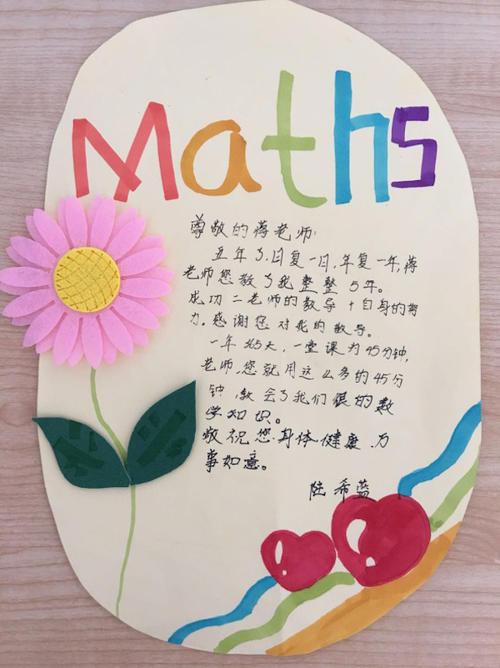 Maths
尊敬的蒋老师:
五年了,日复一日,年复一年,蒋
老师您教了我整整5年。
成功=老师的教导+自身的努
力。感谢您对我的教导。
一年365天,一堂课为45分钟,
老师,您就用这么多的45分
钟,教会了我们很的数
学知识。
敬祝您身体健康,万
事如意。
陆希蓝